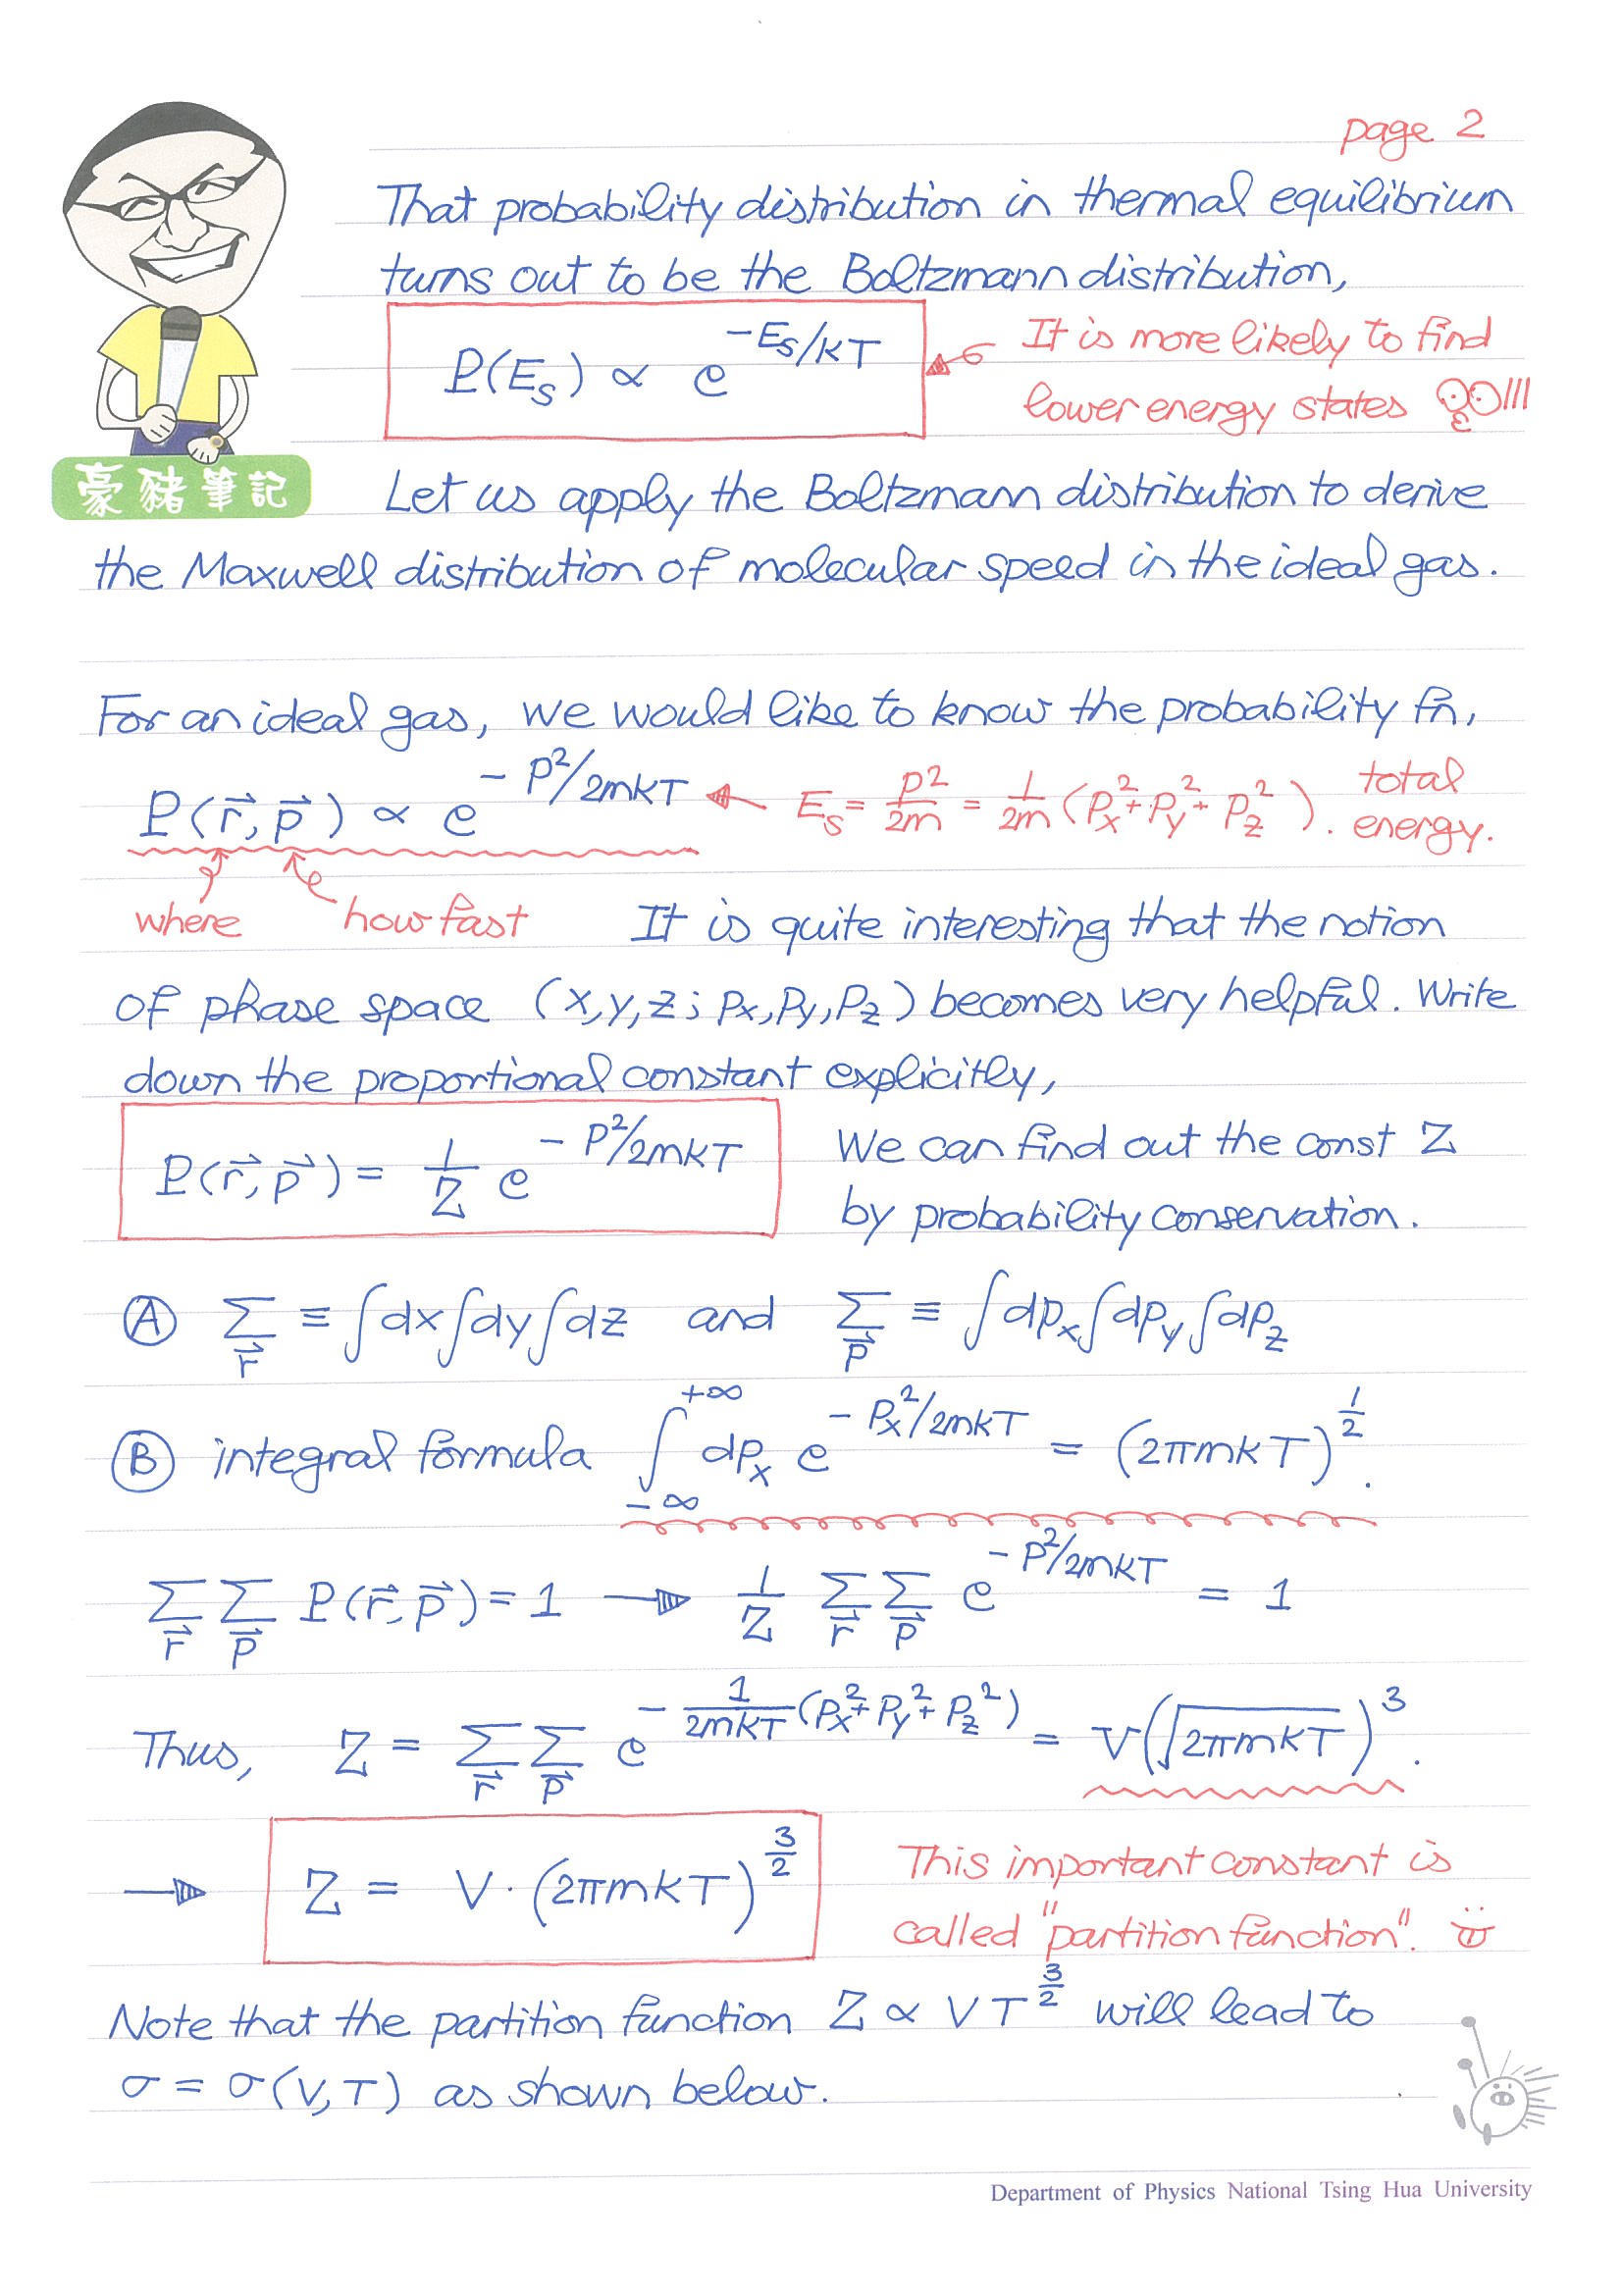 page 2
That probability distribution in thermal equilibrium
turns out to be the Boltzmann distribution,
P(E_s) ∝ e^{-E_s/kT}
It is more likely to find
lower energy states !!!
豪豬筆記
Let us apply the Boltzmann distribution to derive
the Maxwell distribution of molecular speed in the ideal gas.
For an ideal gas, we would like to know the probability fn,
P(r⃗, p⃗) ∝ e^{-p²/2mkT} E_s = p²/2m = 1/2m (p_x² + p_y² + p_z²). total energy.
where how fast
It is quite interesting that the notion
of phase space (x, y, z; p_x, p_y, p_z) becomes very helpful. Write
down the proportional constant explicitly,
P(r⃗, p⃗) = 1/Z e^{-p²/2mkT}
We can find out the const Z
by probability conservation.
Ⓐ Σ_r⃗ ≡ ∫dx∫dy∫dz and Σ_p⃗ ≡ ∫dp_x∫dp_y∫dp_z
Ⓑ integral formula ∫_{-∞}^{+∞} dp_x e^{-p_x²/2mkT} = (2πmkT)^{1/2}.
Σ_r⃗ Σ_p⃗ P(r⃗, p⃗) = 1 → 1/Z Σ_r⃗ Σ_p⃗ e^{-p²/2mkT} = 1
Thus, Z = Σ_r⃗ Σ_p⃗ e^{-1/2mkT (p_x² + p_y² + p_z²)} = V(√2πmkT)³.
→ Z = V · (2πmkT)^{3/2}
This important constant is
called "partition function".
Note that the partition function Z ∝ V T^{3/2} will lead to
σ = σ(V, T) as shown below.
Department of Physics National Tsing Hua University